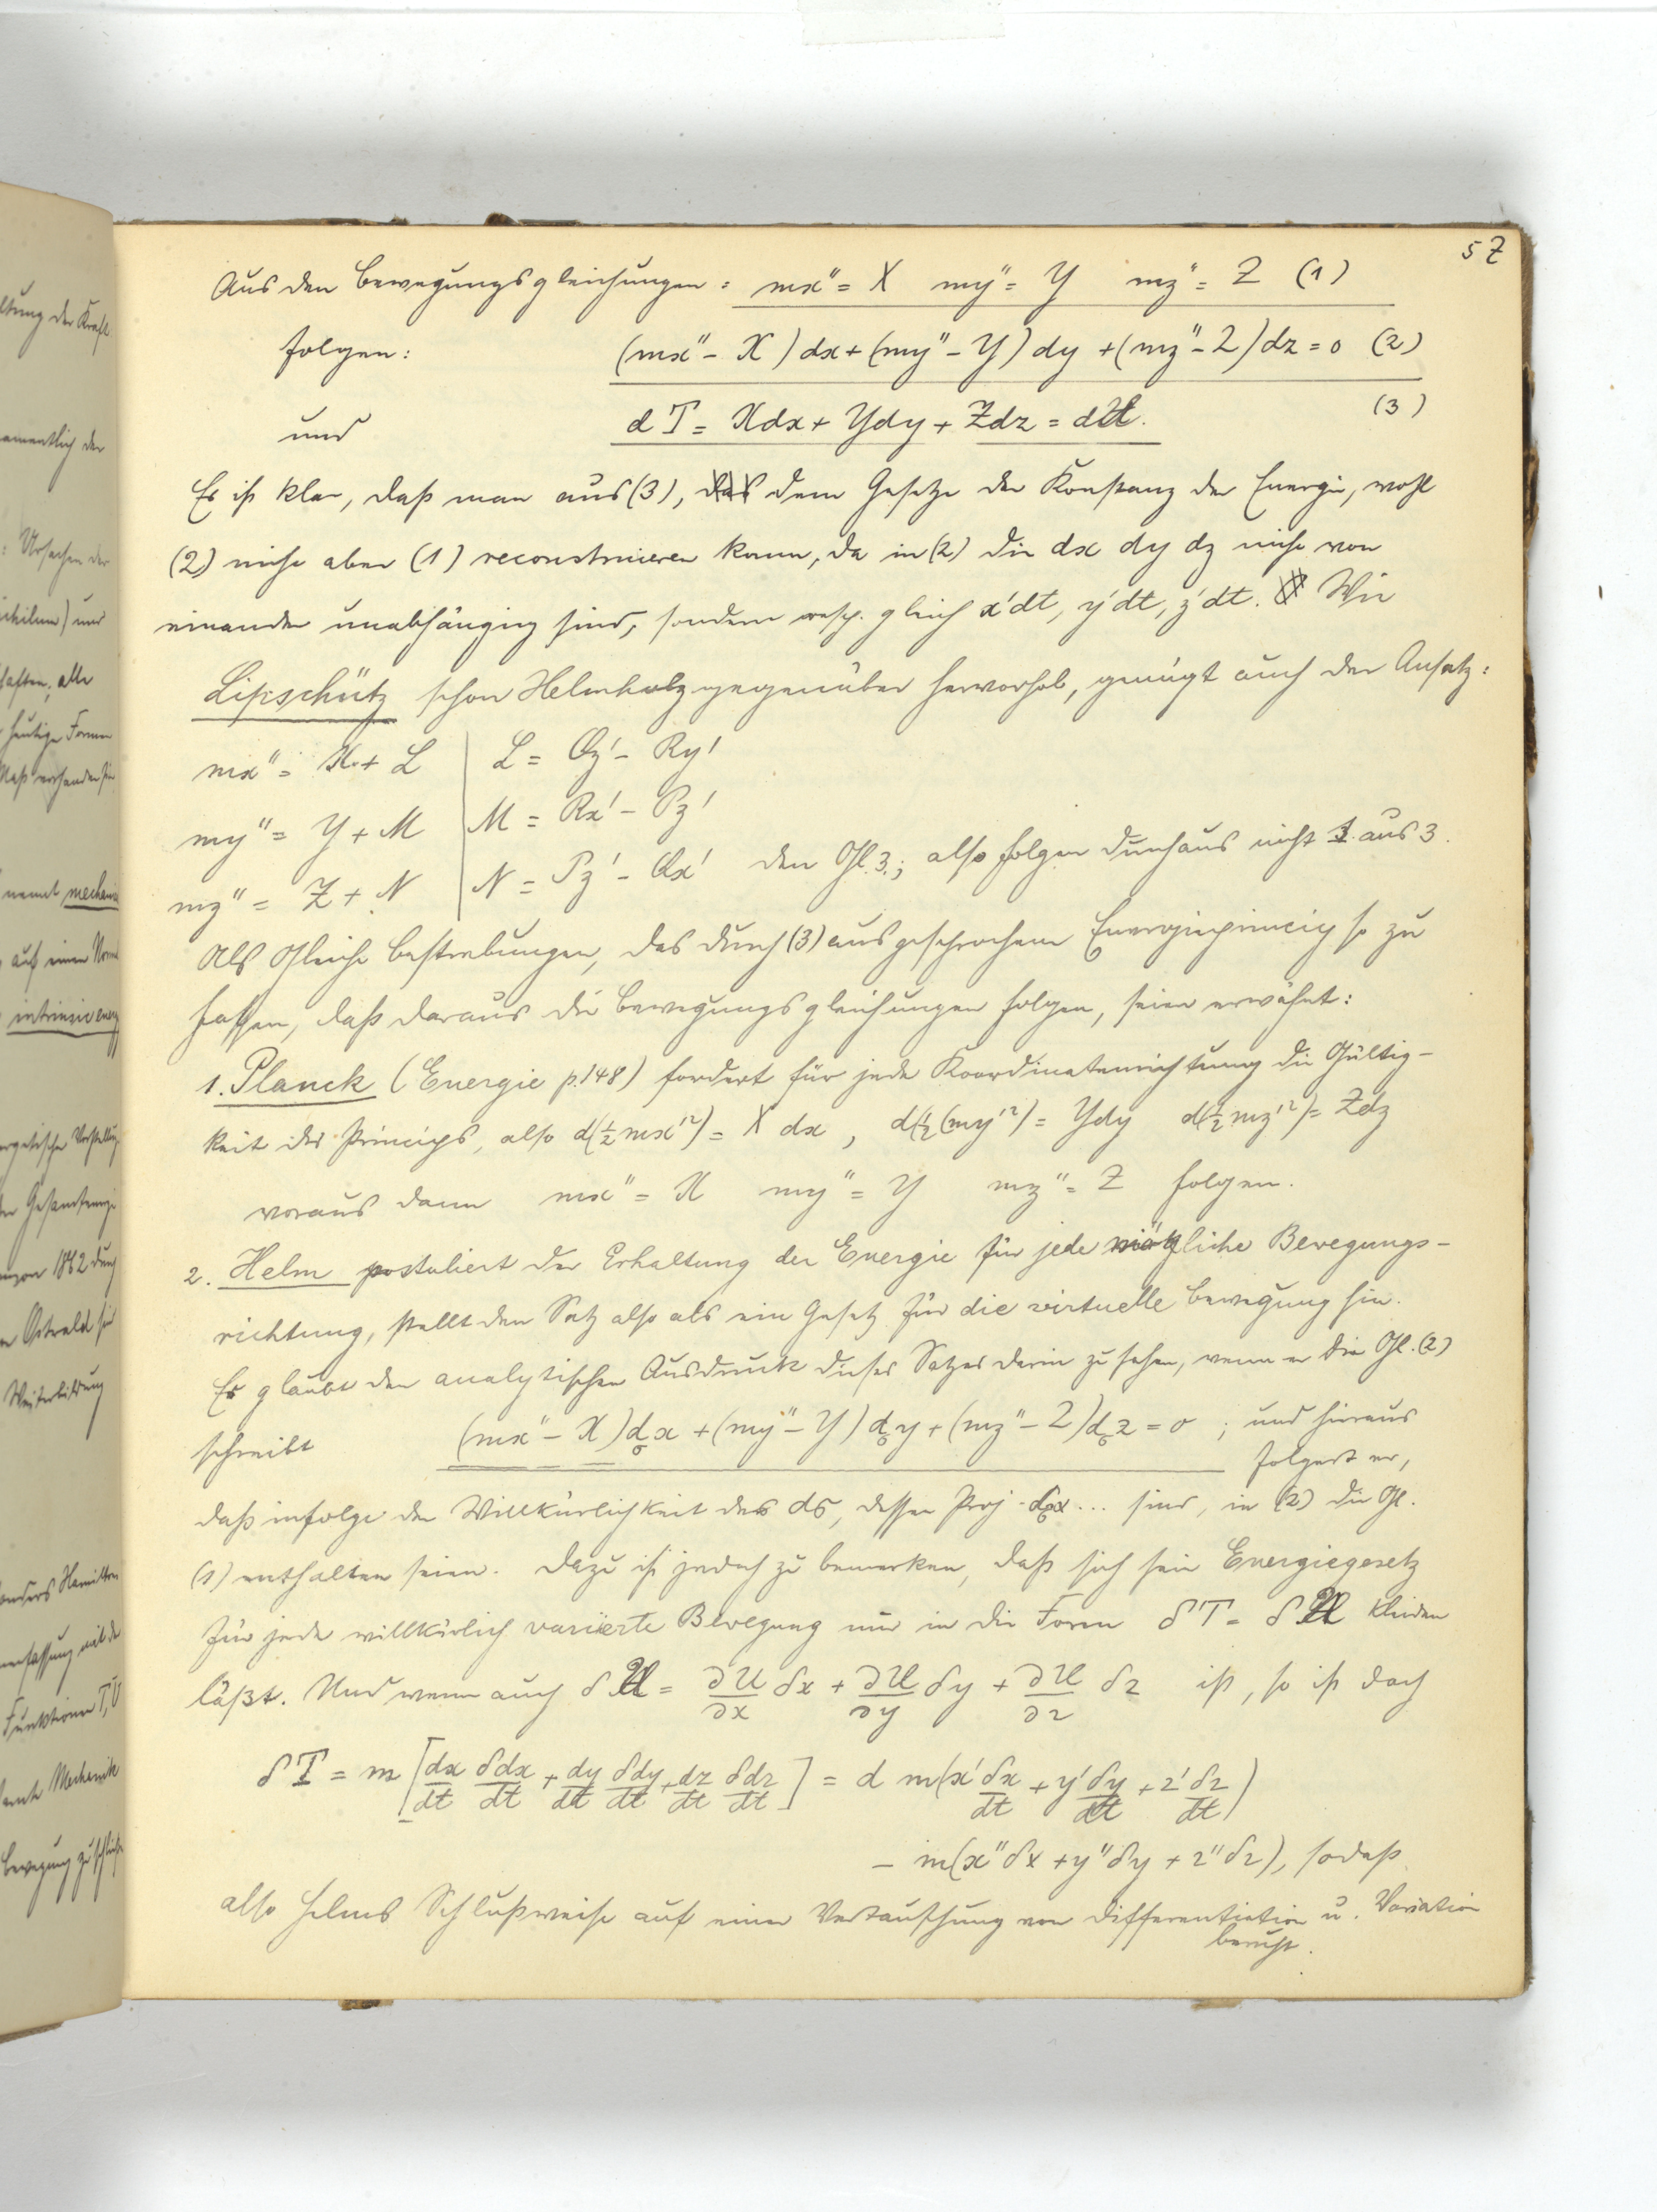 57
Aus den Bewegungsgleichungen: mx'' = X my'' = Y mz'' = Z (1)
folgen: (mx'' - X)dx + (my'' - Y)dy + (mz'' - Z)dz = 0 (2)
und dT = Xdx + Ydy + Zdz = dU. (3)
Es ist klar, daß man aus (3), das dem Gesetze der Konstanz der Energie, wohl
(2) nicht aber (1) reconstruieren kann, da in (2) die dx dy dz nicht von
einander unabhängig sind, sondern resp. gleich x'dt, y'dt, z'dt. Wie
Lipschütz schon Helmholz gegenüber hervorhob, genügt auch der Ansatz:
mx'' = X + L L = Qz' - Ry'
my'' = Y + M M = Rx' - Pz'
mz'' = Z + N N = Pz' - Qx' den Gl. 3.; also folgen durchaus nicht 1. aus 3.
Als Gleiche Bestrebungen, das durch (3) ausgesprochene Energieprincip so zu
fassen, daß daraus die Bewegungsgleichungen folgen, seien erwähnt:
1. Planck (Energie p. 148) fordert für jede Koordinatenrichtung die Gültig-
keit des Princips, also d(½ mx'²) = X dx, d(½(my'²) = Ydy d(½ mz'²) = Zdz
woraus dann mx'' = X my'' = Y mz'' = Z folgen.
2. Helm postuliert der Erhaltung der Energie für jede mögliche Bewegungs-
richtung, stellt den Satz also als ein Gesetz für die virtuelle Bewegung hin.
Er glaubt den analytischen Ausdruck dieses Satzes darin zu sehen, wenn er die Gl. (2)
schreibt (mx'' - X)dσx + (my'' - Y)dσy + (mz'' - Z)dσz = 0 ; und hieraus
folgert er,
daß infolge der Willkürlichkeit des dσ, dessen Proj. dσx ... sind, in (2) die Gl.
(1) enthalten seien. Dazu ist jedoch zu bemerken, daß sich sein Energiegesetz
für jede willkürlich variierte Bewegung nur in die Form δT = δU kleiden
läßt. Und wenn auch δU = ∂U/∂x δx + ∂U/∂y δy + ∂U/∂z δz ist, so ist doch
δT = m [dx/dt δdx/dt + dy/dt δdy/dt + dz/dt δdz/dt] = d m(x' δx/dt + y' δy/dt + z' δz/dt)
- m(x''δx + y''δy + z''δz), sodaß
also Helms Schlußweise auf einer Vertauschung von Differentiation u. Variation
beruht.